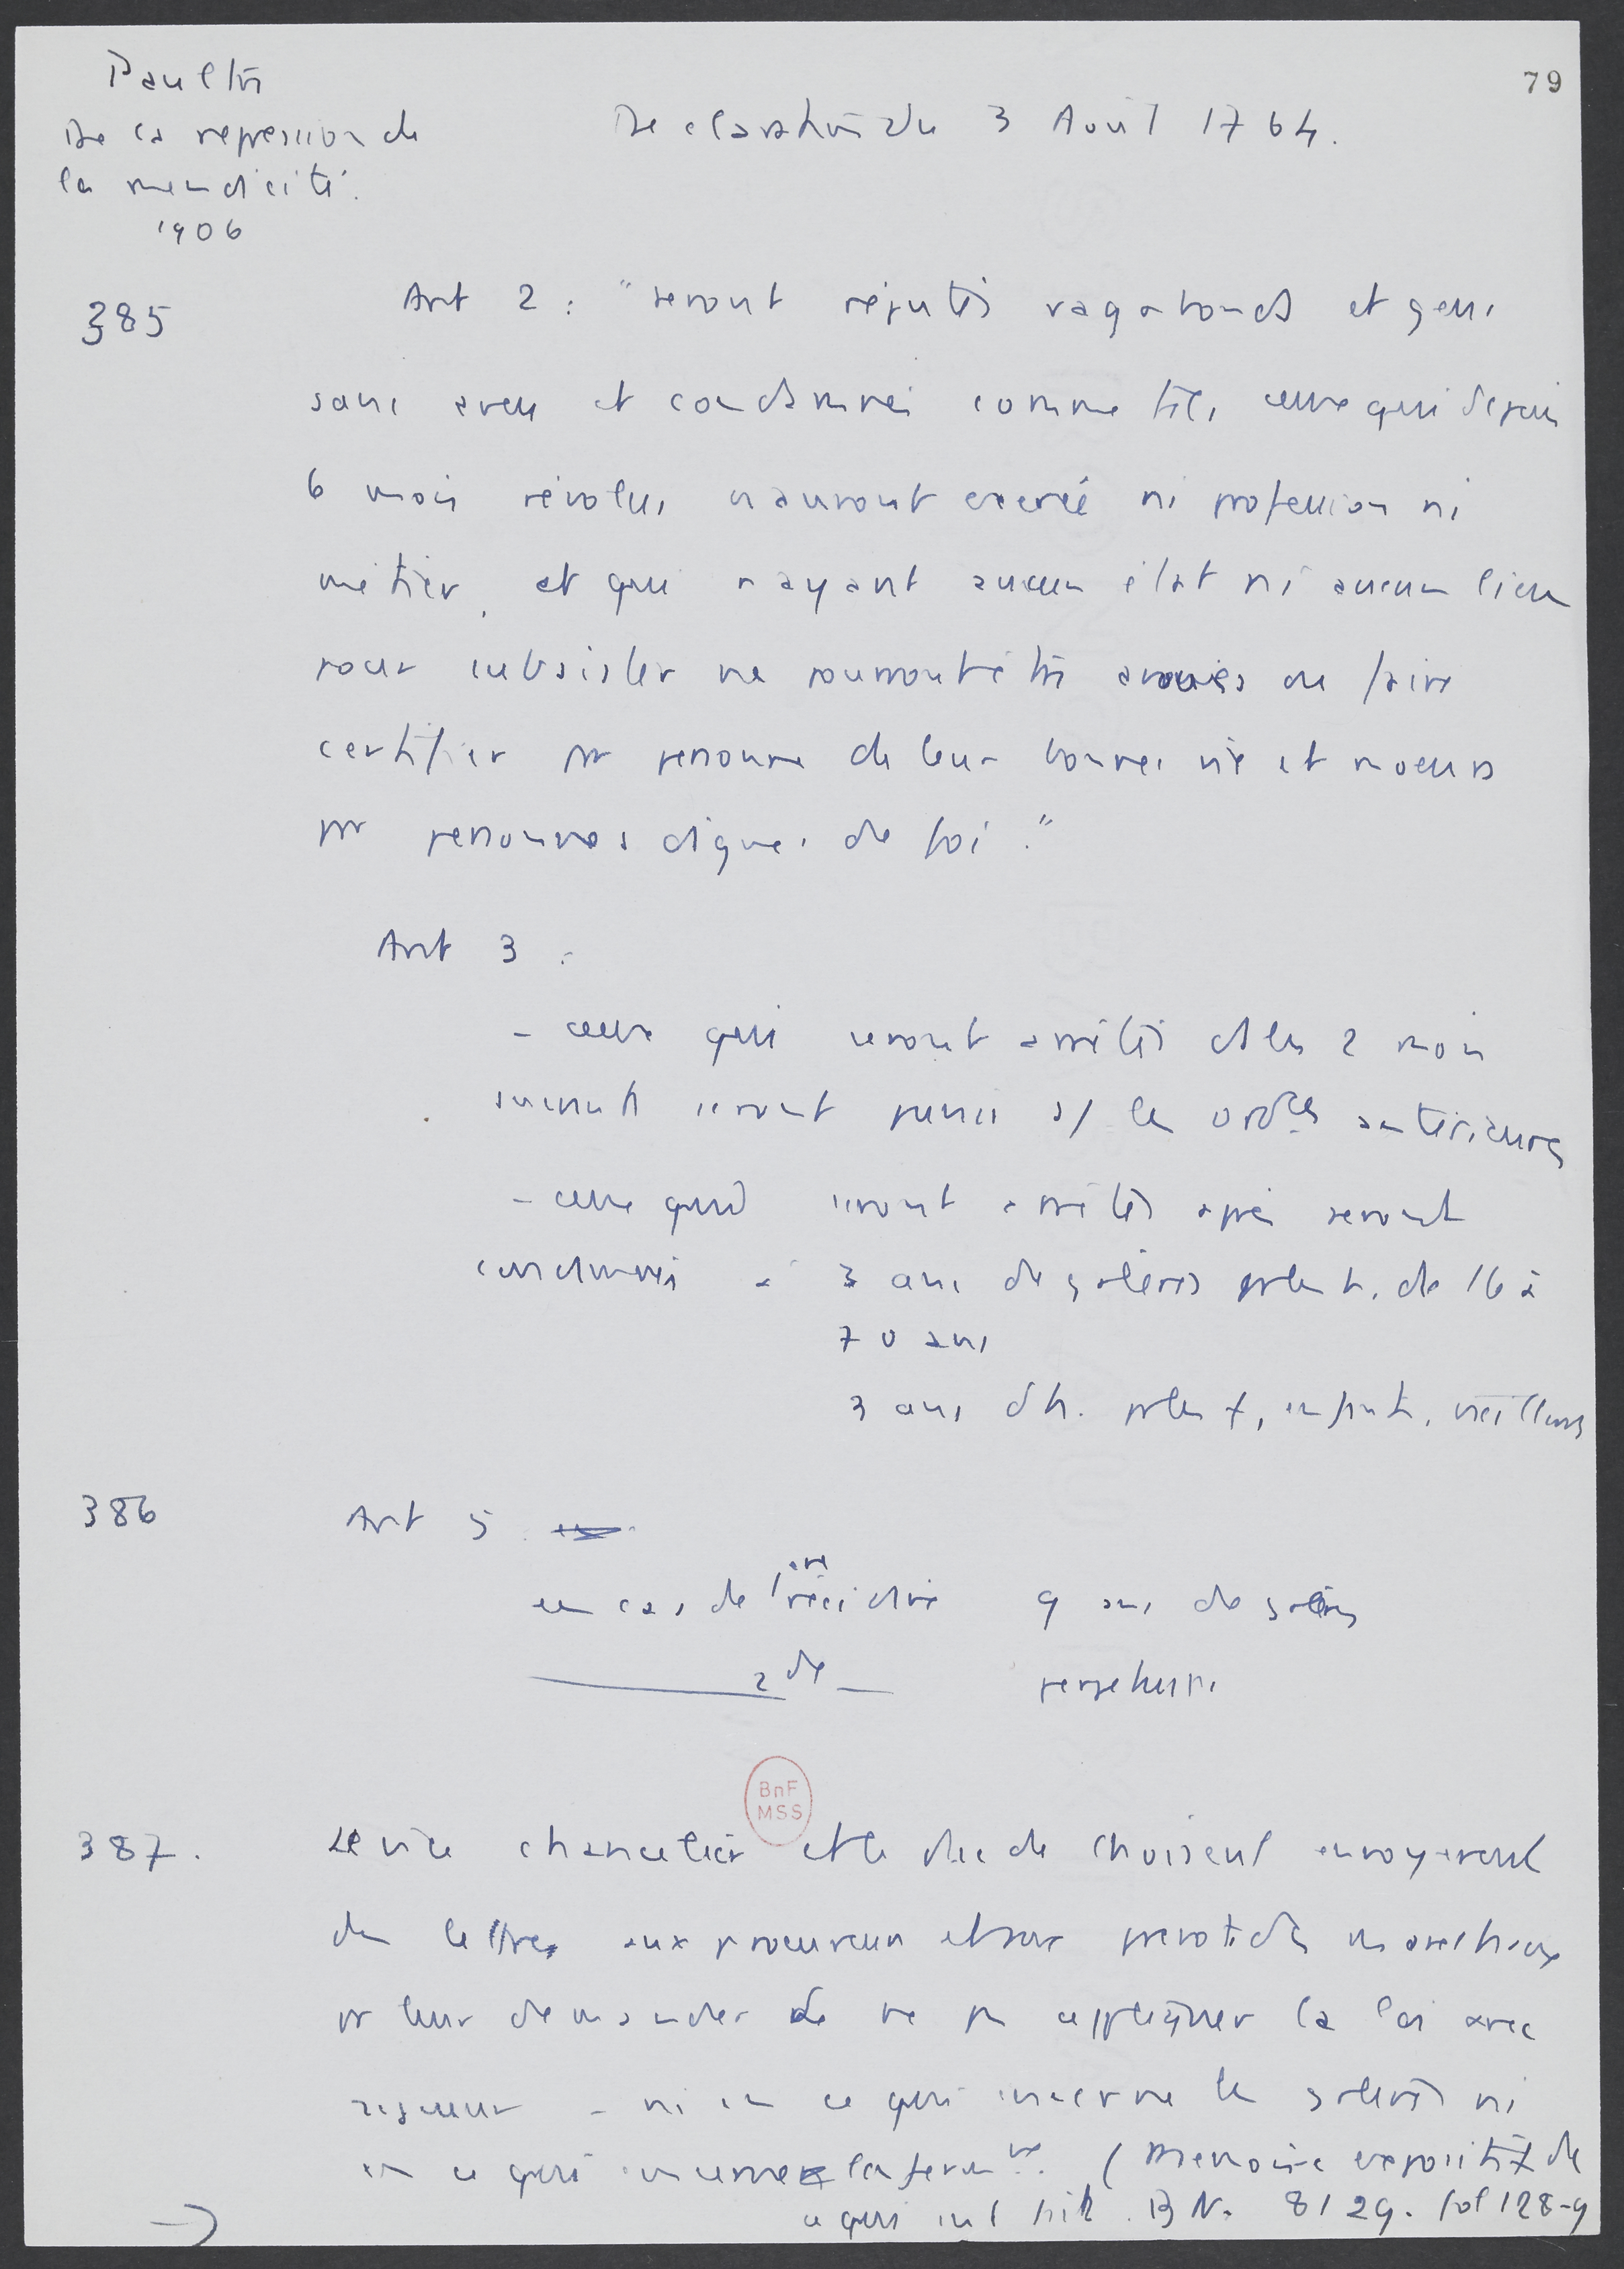 79
Paultre
De la repression de
la mendicité.
1906
Declaration du 3 Aout 1764.
385
Art 2 : "seront réputés vagabonds et gens
sans aveu et condamnés comme tels, ceux qui depuis
6 mois révolus n'auront exercé ni profession ni
métier, et qui n'ayant aucun état ni aucun lieu
pour subsister ne pourront être avoués ou faire
certifier par personne de leur bonnes vie et moeurs
par personnes dignes de foi."
Art 3 :
- ceux qui seront arrêtés ds les 2 mois
suivants seront punis s/ les ordces anterieures
- ceux qui seront arrêtés après seront
condamnés à 3 ans de galères pr les h. de 16 à
70 ans
3 ans d'h. pr les f, enfants, vieillards
386
Art 5
en cas de 1ere récidive 9 ans de galères
2de perpetuité
387.
Le vice chancelier et le duc de Choiseul envoyerent
des lettres aux procureurs et aux prevots des marechaux
pr leur demander de ne pas appliquer la loi avec
rigueur - ni en ce qui concerne les galères ni
en ce qui concerne la (Memoire expositif de
ce qui s'est fait. B N. 8129. fol 128-9
BnF
MSS